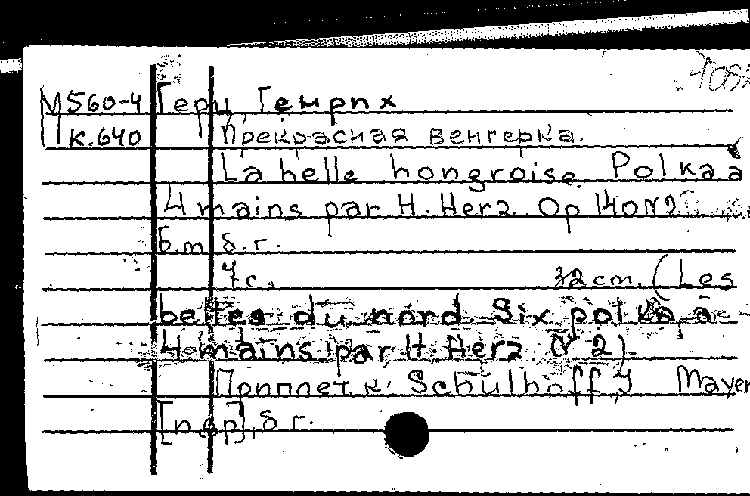 М560-4 Герц, Генрих
К.640 Прекрасная венгерка.
La belle hongroise. Polka à
4 mains par H. Herz. Op 140 N 2
Б.м. б.г.
7с. 32 cm. (Les
belles du nord Six polka à
4 mains par H. Herz N 2).
Приплет к: Schulhoff, J Mayer
б г.